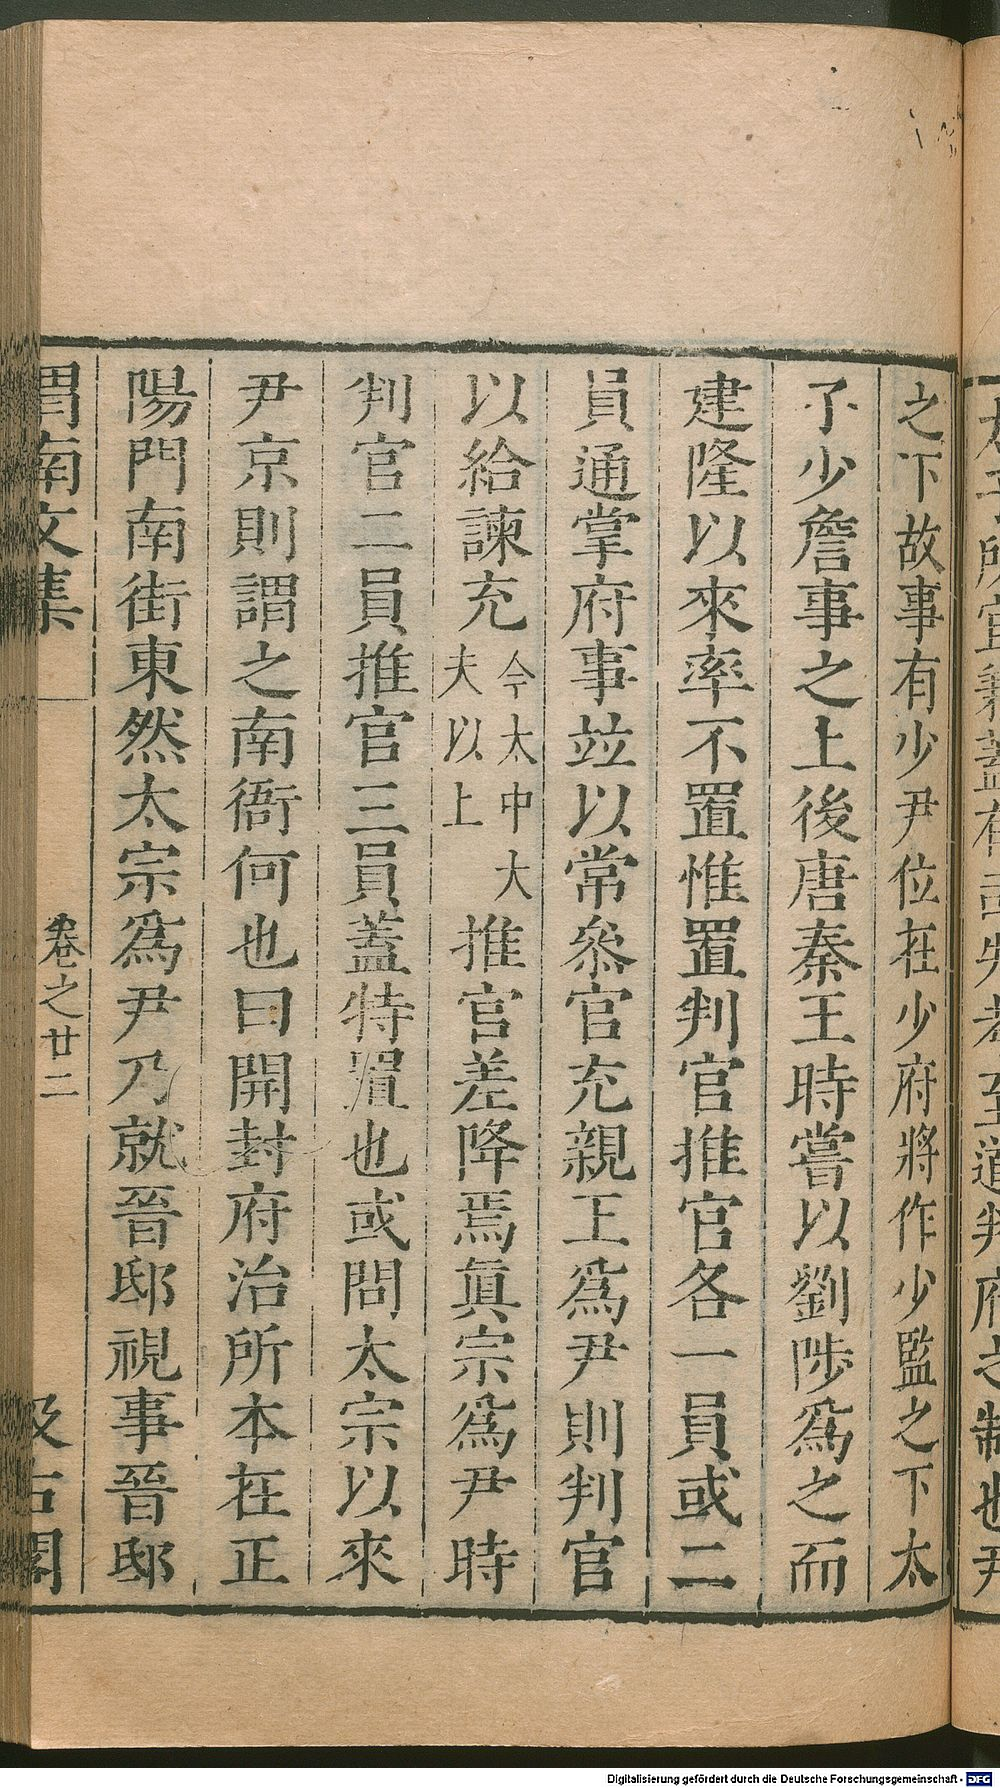 之下故事有少尹位在少府將作少監之下太
子少詹事之上後唐秦王時嘗以劉陟爲之而
建隆以來率不置惟置判官推官各一員或二
員通掌府事竝以常叅官充親王爲尹則判官
以給諫充今太中大夫以上推官差降焉眞宗爲尹時
判官二員推官三員蓋特置也或問太宗以來
尹京則謂之南衙何也曰開封府治所本在正
陽門南街東然太宗爲尹乃就晉邸視事晉邸
渭南文集 卷之廿二 汲古閣
Digitalisierung gefördert durch die Deutsche Forschungsgemeinschaft - DFG